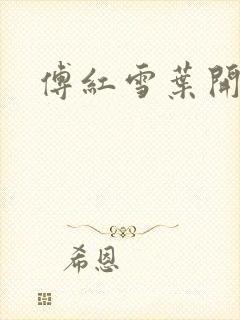 傅紅雪葉開
希恩